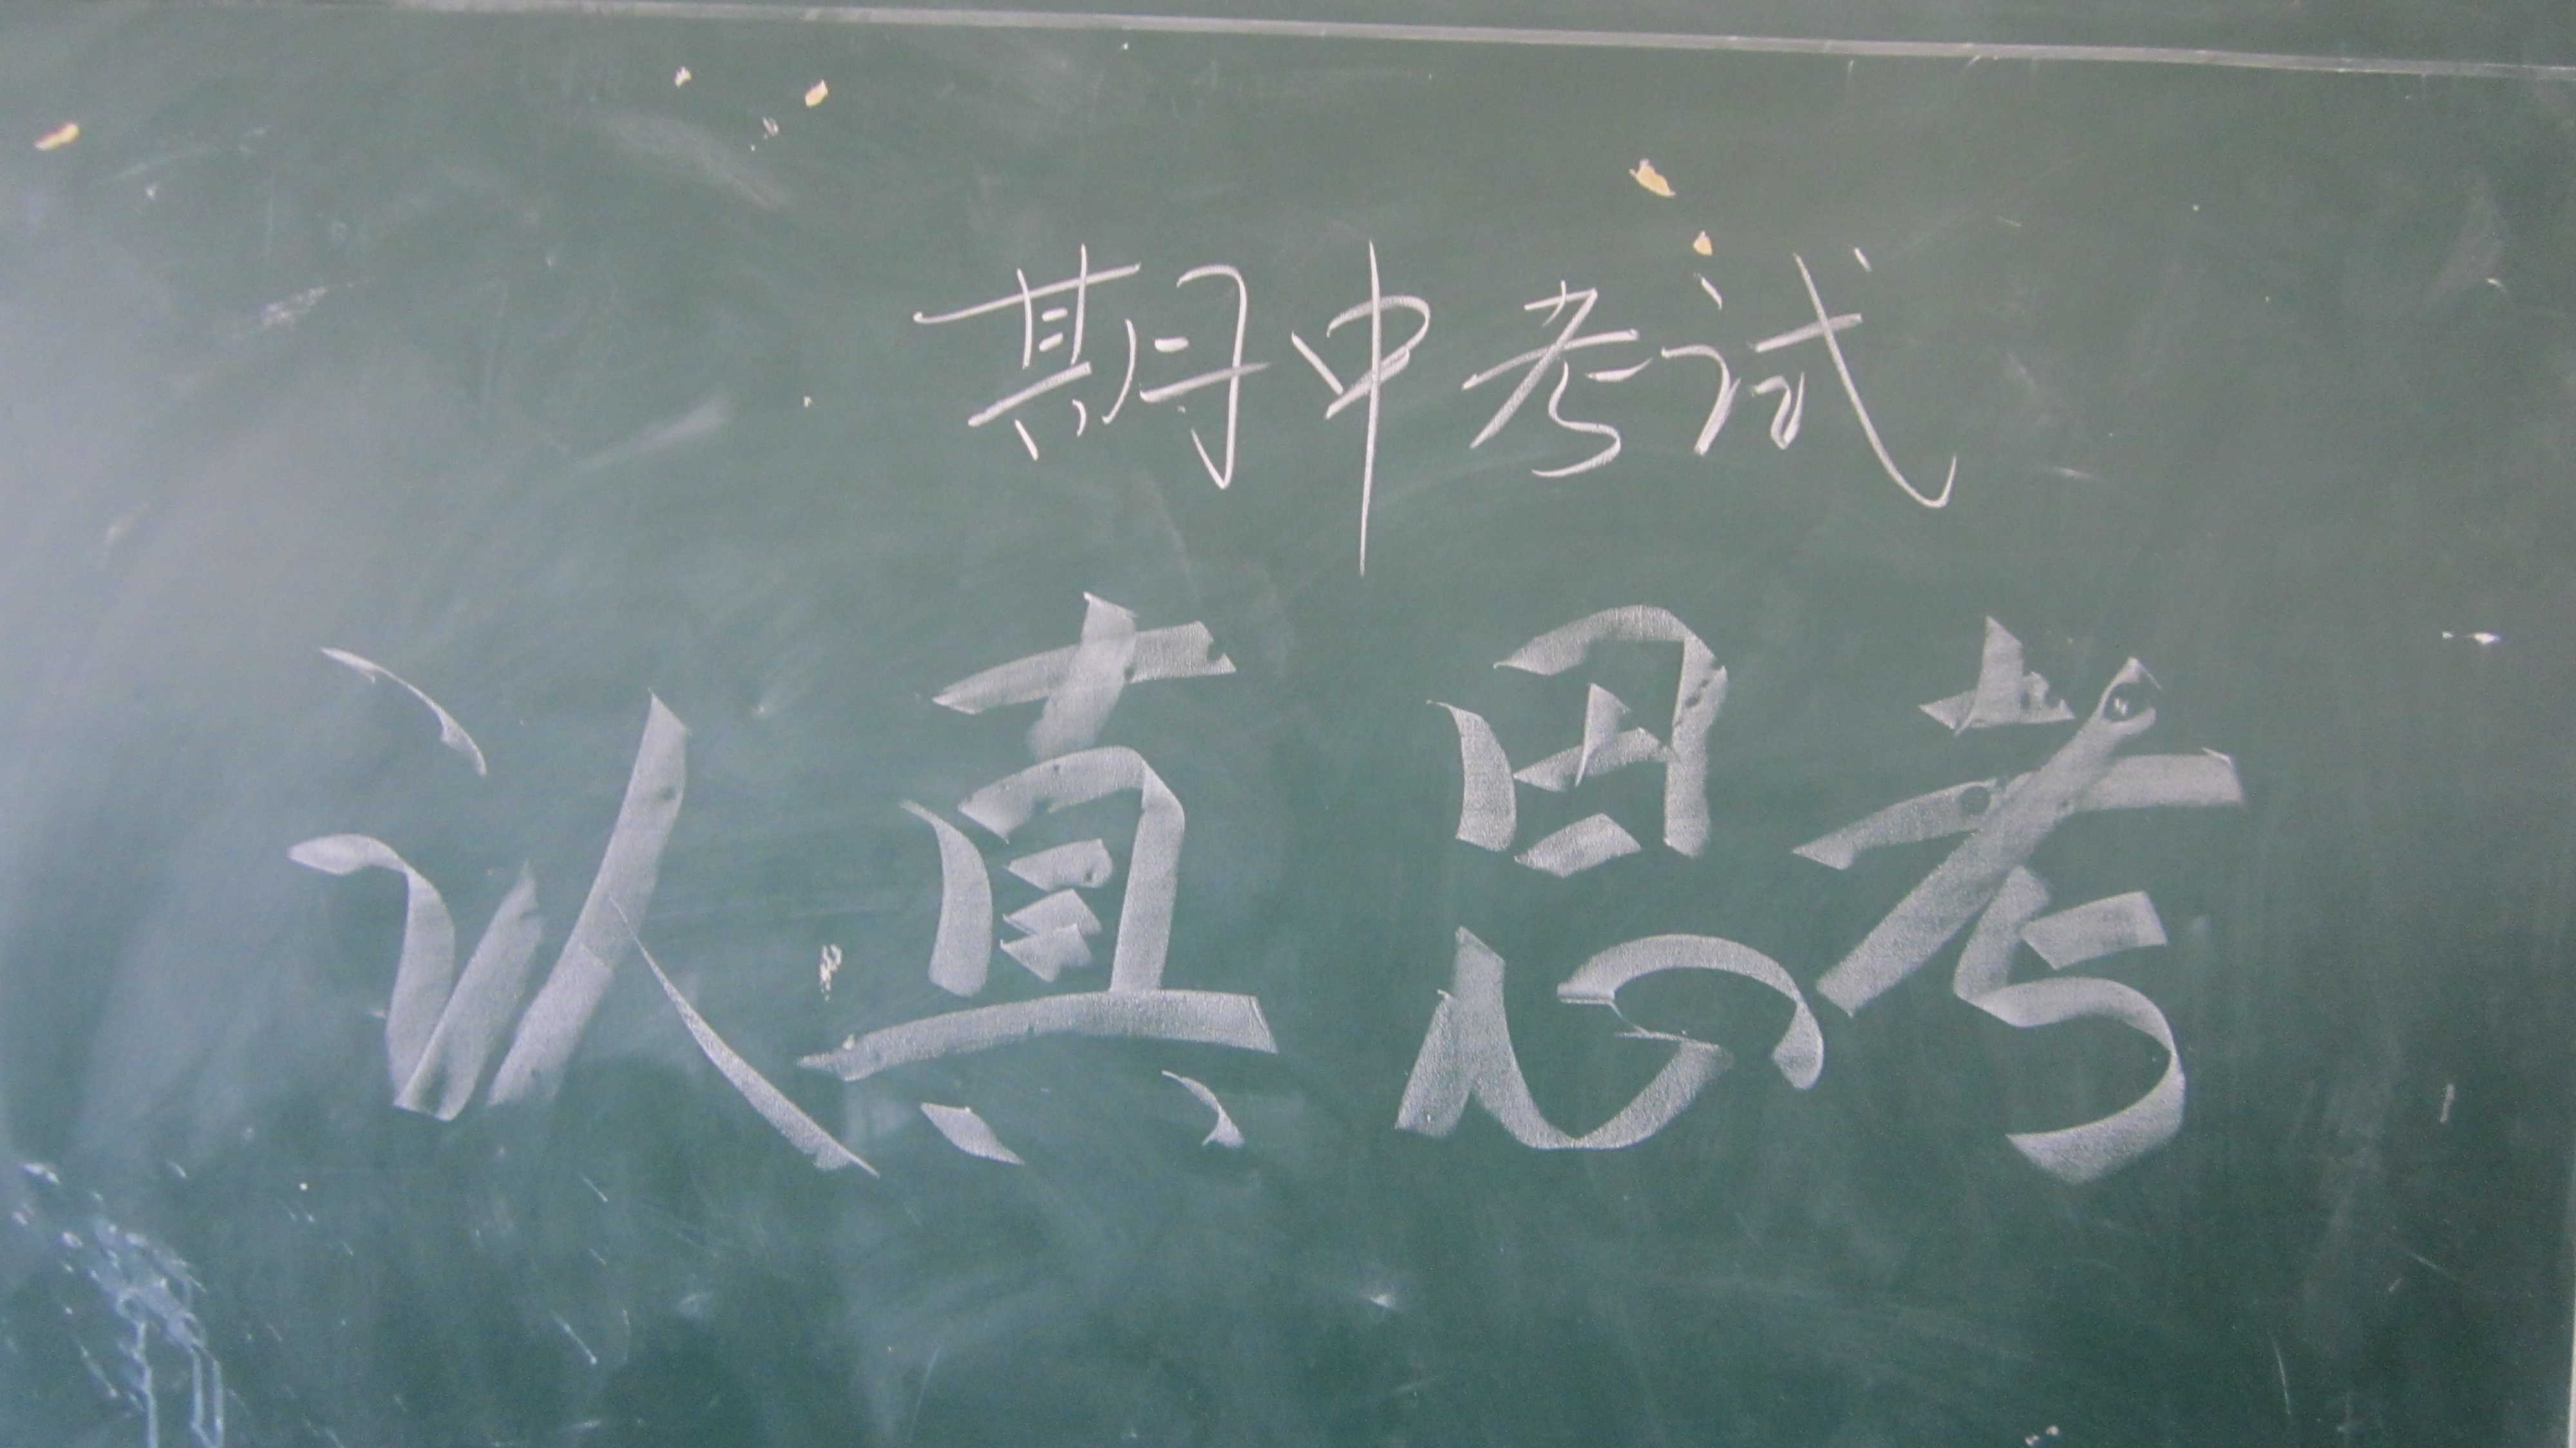 期中考试
认真思考